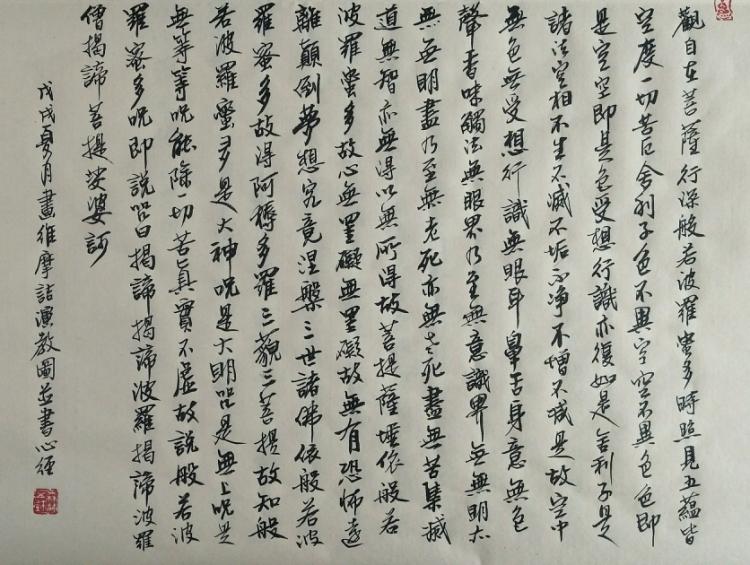 觀自在菩薩行深般若波羅蜜多時照見五蘊皆
空度一切苦厄舍利子色不異空空不異色色即
是空空即是色受想行識亦復如是舍利子是
諸法空相不生不滅不垢不净不增不減是故空中
無色無受想行識無眼耳鼻舌身意無色
聲香味觸法無眼界乃至無意識界無無明亦
無無明盡乃至無老死亦無老死盡無苦集滅
道無智亦無得以無所得故菩提薩埵依般若
波羅蜜多故心無罣礙無罣礙故無有恐怖遠
離顛倒夢想究竟涅槃三世諸佛依般若波
羅蜜多故得阿耨多羅三藐三菩提故知般
若波羅蜜多是大神呪是大明呪是無上呪是
無等等呪能除一切苦真實不虛故說般若波
羅蜜多呪即說呪曰揭諦揭諦波羅揭諦波羅
僧揭諦菩提娑婆訶
戊戌夏月畫維摩詰演教圖並書心經